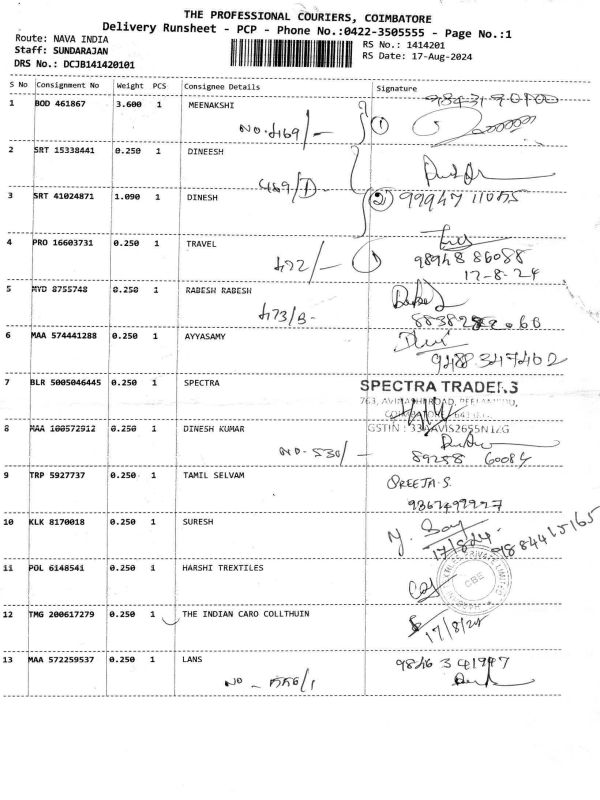 THE PROFESSIONAL COURIERS, COIMBATORE
Delivery Runsheet - PCP - Phone No.:0422-3505555 - Page No.:1
Route: NAVA INDIA
Staff: SUNDARAJAN
DRS No.: DCJB141420101
RS No.: 1414201
RS Date: 17-Aug-2024
S No Consignment No Weight PCS Consignee Details Signature
1 BOD 461867 3.600 1 MEENAKSHI
NO. 469/- 1
2 SRT 15338441 0.250 1 DINEESH
469/D
3 SRT 41024871 1.090 1 DINESH 2
4 PRO 16603731 0.250 1 TRAVEL
472/- 98948 86088
17-8-24
5 MYD 8755748 0.250 1 RABESH RABESH
473/B-
6 MAA 574441288 0.250 1 AYYASAMY
9488347402
7 BLR 5005046445 0.250 1 SPECTRA SPECTRA TRADERS
8 MAA 100572912 0.250 1 DINESH KUMAR
NO-530/- 89258 60084
9 TRP 5927737 0.250 1 TAMIL SELVAM PREETA-S.
10 KLK 8170018 0.250 1 SURESH
17/8/24
11 POL 6148541 0.250 1 HARSHI TREXTILES
CBE
12 TMG 200617279 0.250 1 THE INDIAN CARO COLLTHUIN
17/8/24
13 MAA 572259537 0.250 1 LANS
NO - 556/1